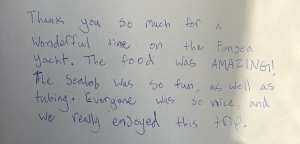 Thank you so much for a
wonderful time on the
yacht. The food was AMAZING!
The Seabob was so fun, as well as
tubing. Everyone was so nice and
we really enjoyed this trip.